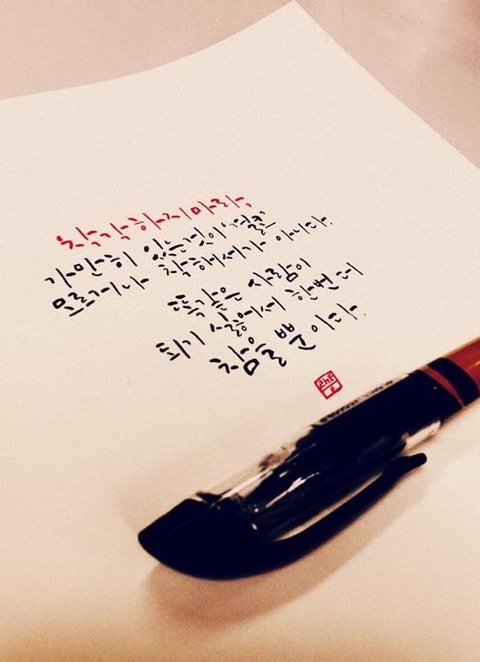 착각하지마라.
가만히 있는것이 결코
모르거나 착해서가 아니다.
똑같은 사람이
되기 싫어서 한번 더
참을 뿐이다.